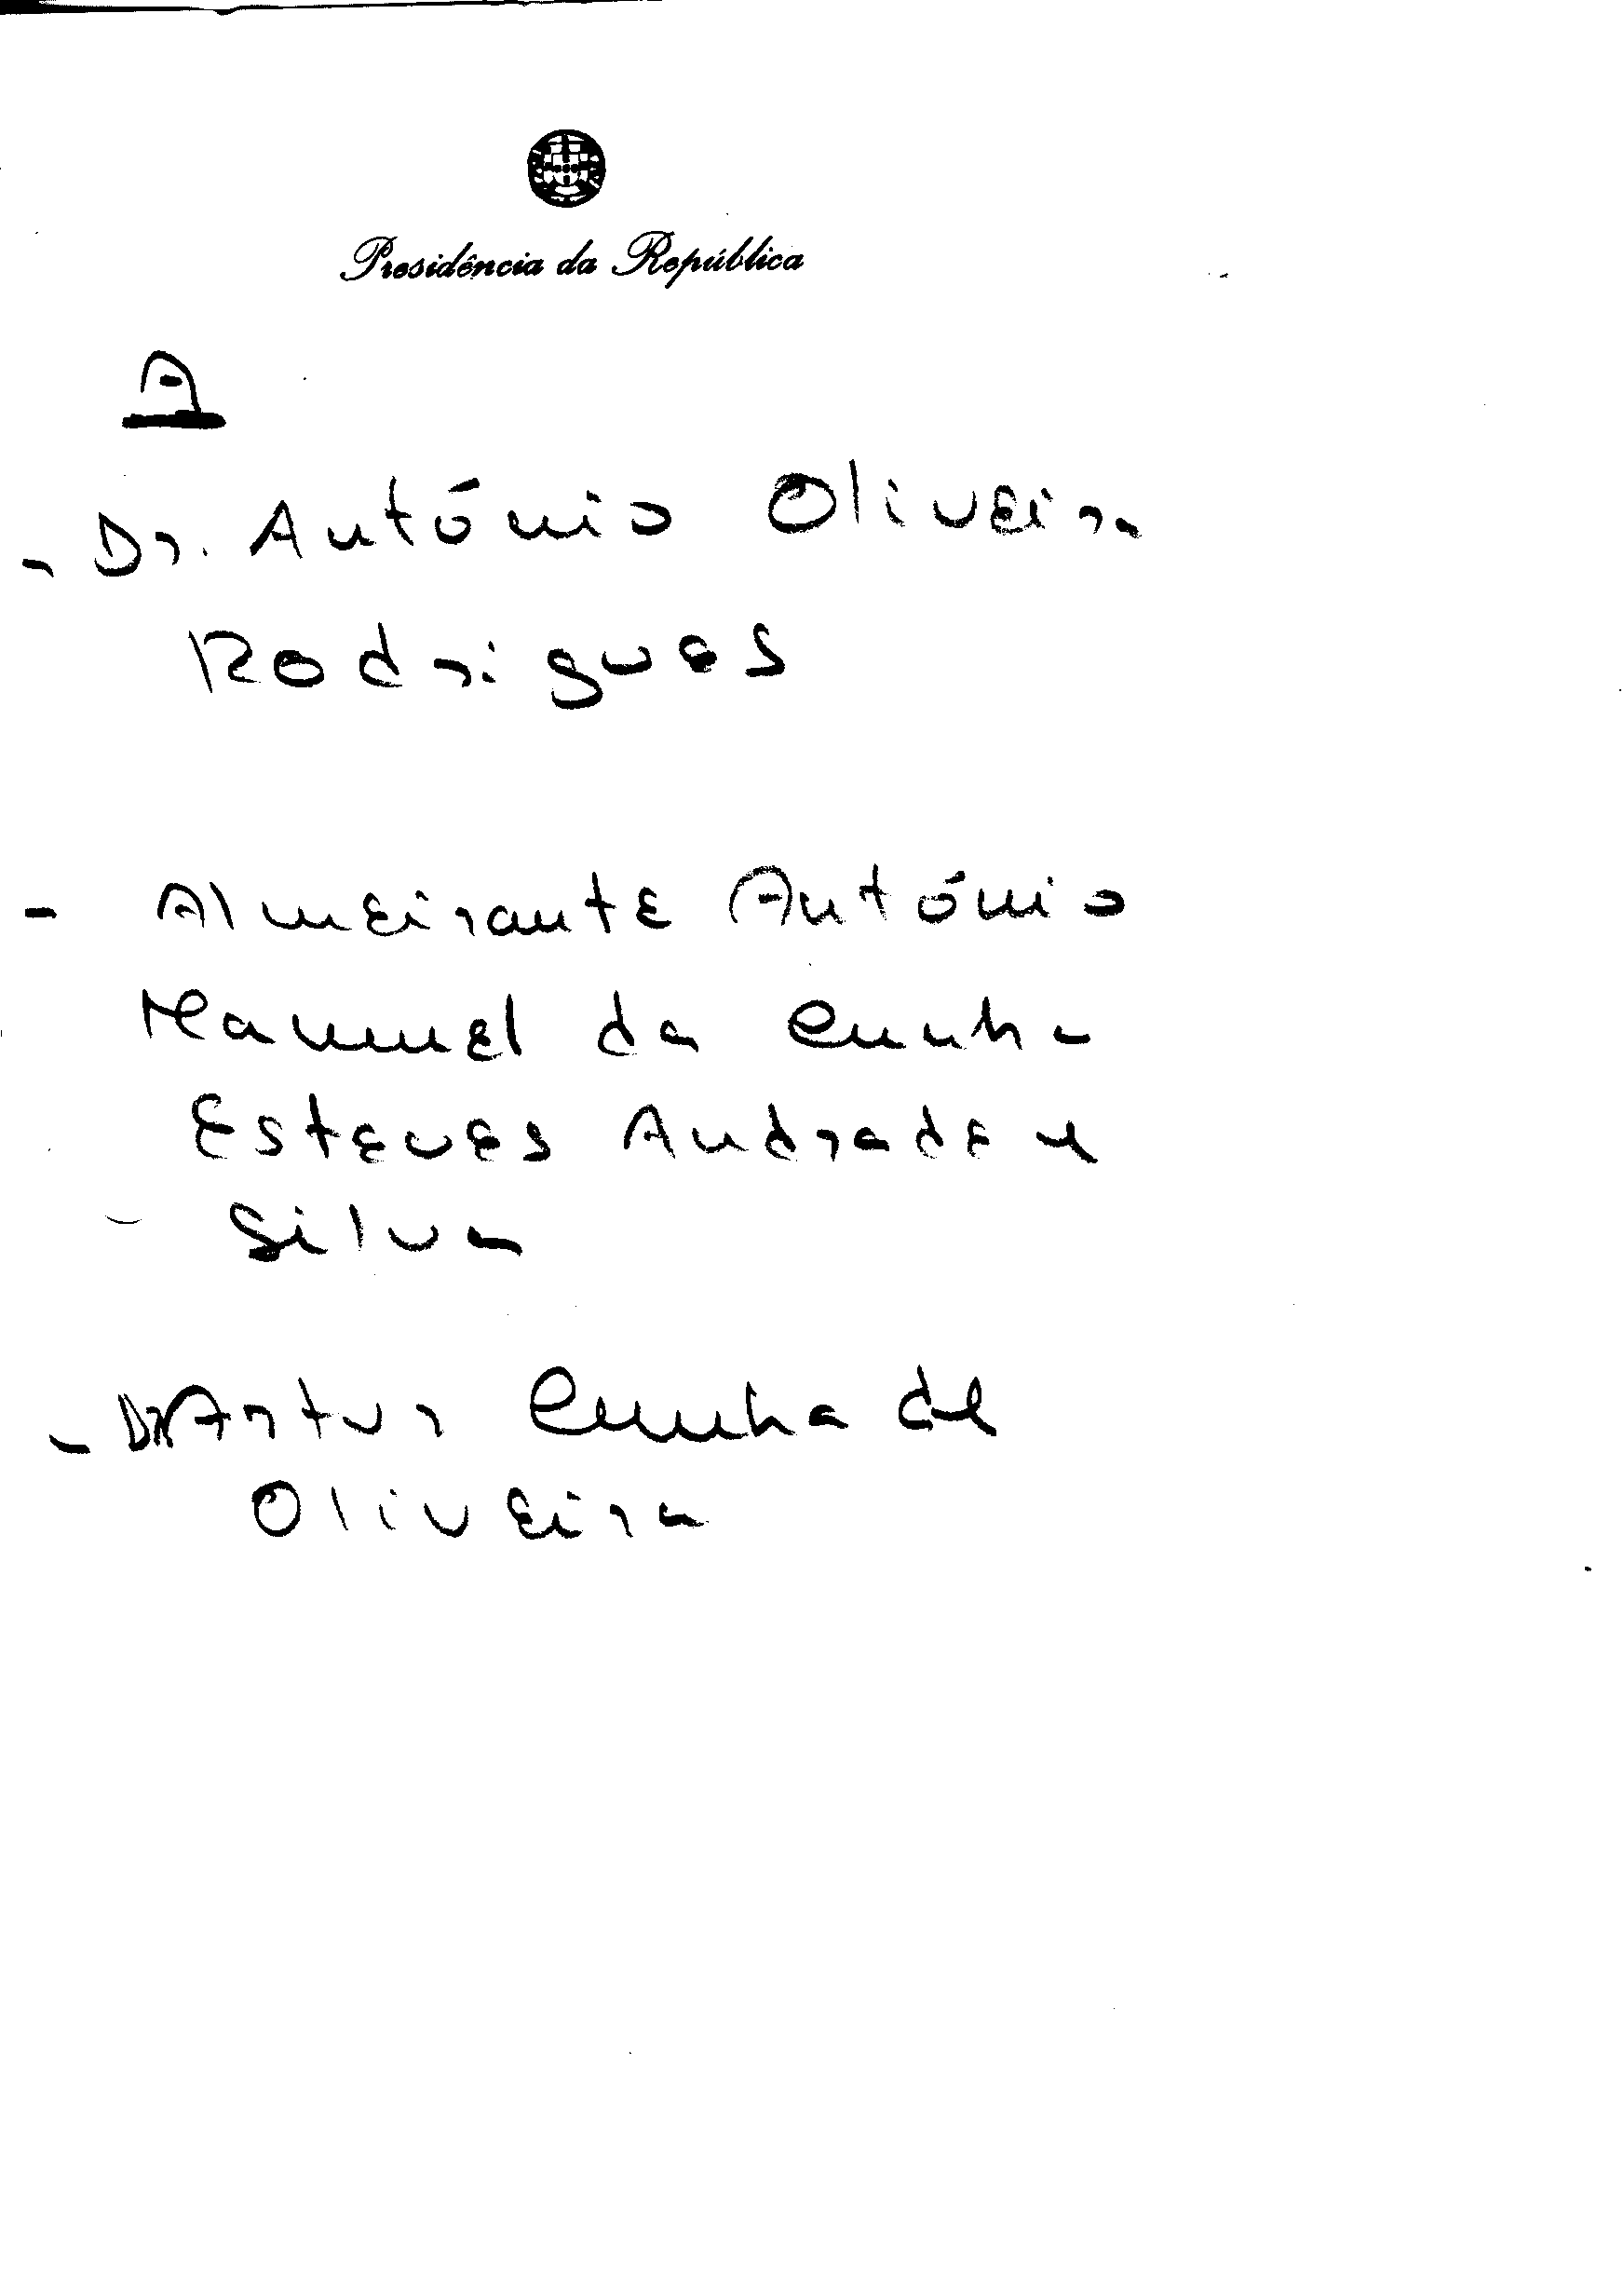 Presidência da República
A
- Dr. António Oliveira
Rodrigues
- Almeirante António
Manuel da Cunha
Esteves Andrade e
Silva
- Dr Artur Cunha de
Oliveira